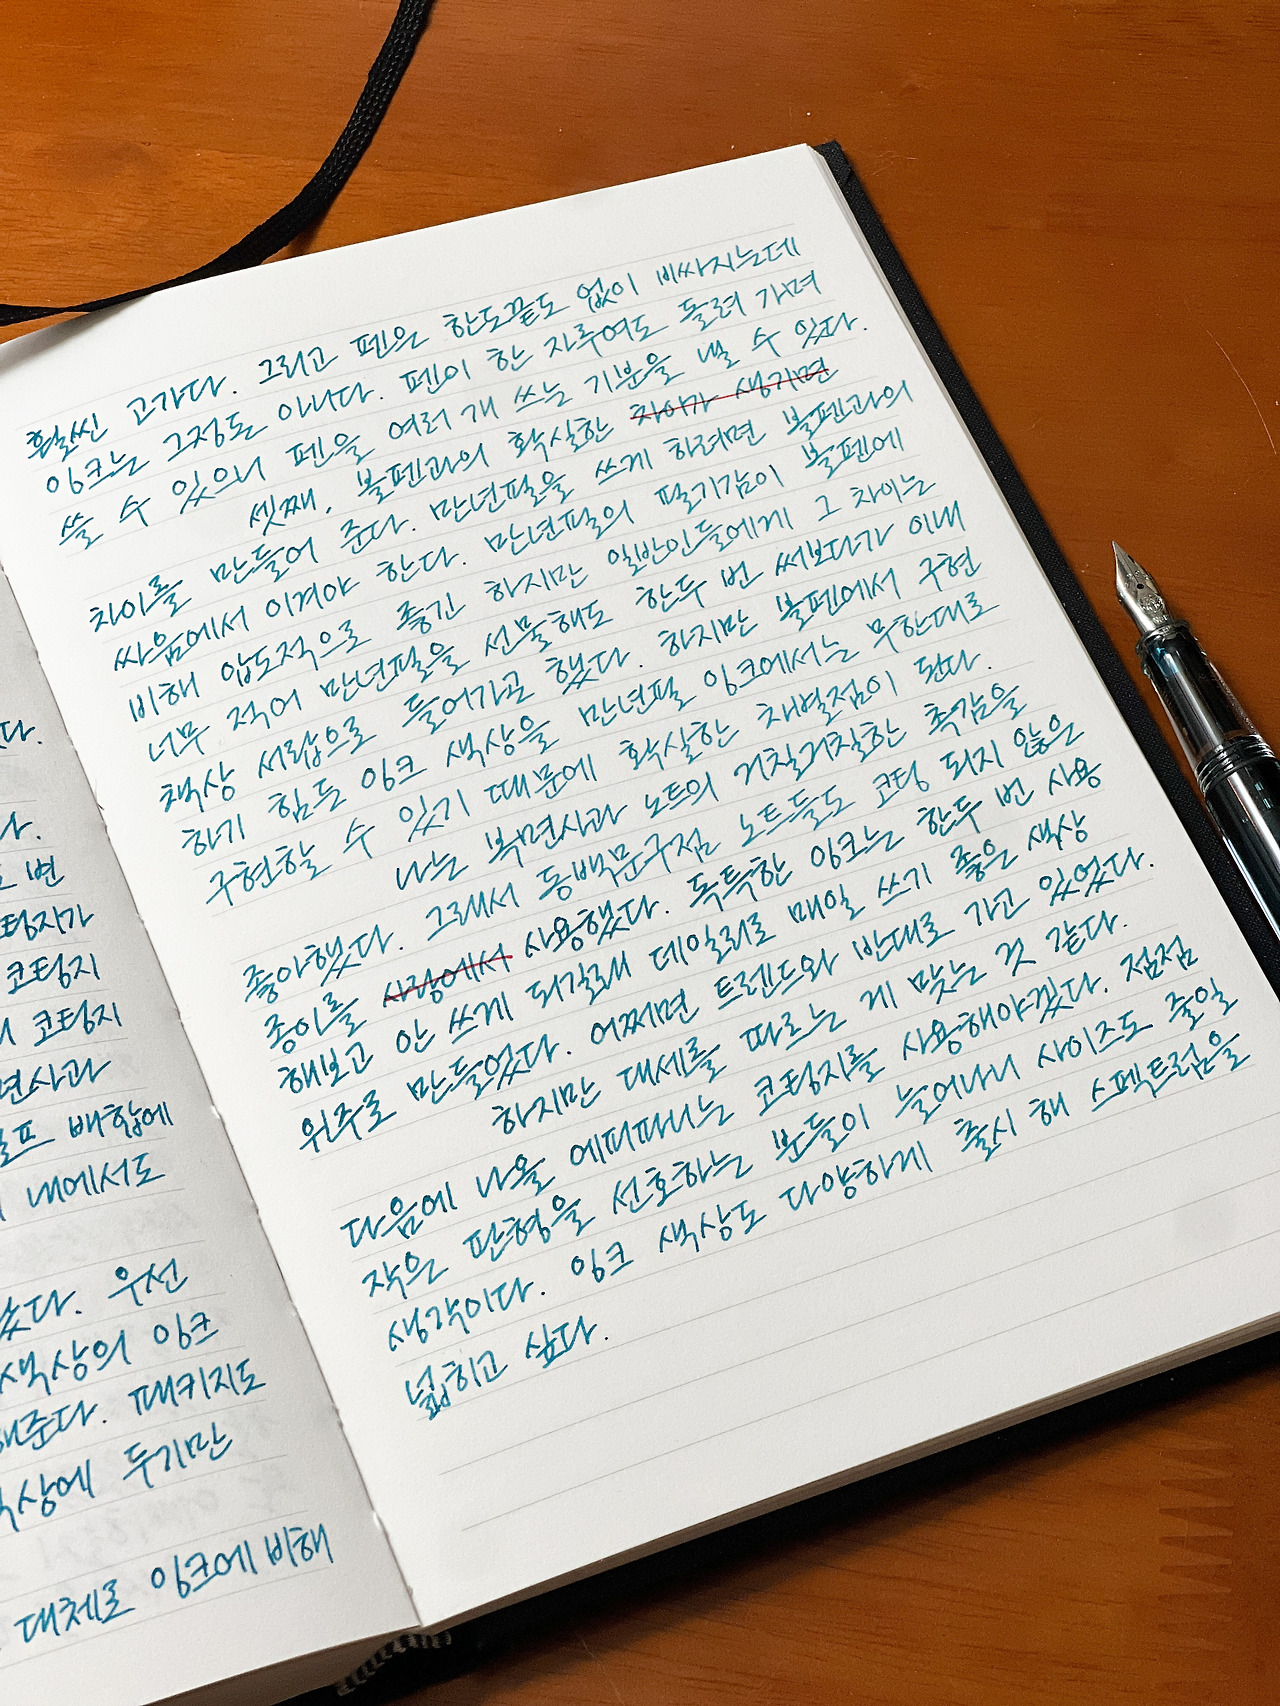 다.
다.
도 변
코팅지가
코팅지
코팅지
면사과
프 배합에
내에서도
다. 우선
색상의 잉크
해준다. 패키지도
책상에 두기만
대체로 잉크에 비해
훨씬 고가다. 그리고 펜은 한도끝도 없이 비싸지는데
잉크는 그정도는 아니다. 펜이 한 자루여도 돌려 가며
쓸 수 있으니 펜을 여러 개 쓰는 기분을 낼 수 있다.
셋째, 볼펜과의 확실한 차이가 생기면
차이를 만들어 준다. 만년필을 쓰게 하려면 볼펜과의
싸움에서 이겨야 한다. 만년필의 필기감이 볼펜에
비해 압도적으로 좋긴 하지만 일반인들에게 그 차이는
너무 적어 만년필을 선물해도 한두 번 써보다가 이내
책상 서랍으로 들어가곤 했다. 하지만 볼펜에서 구현
하기 힘든 잉크 색상을 만년필 잉크에서는 무한대로
구현할 수 있기 때문에 확실한 차별점이 된다.
나는 복면사과 노트의 거칠거칠한 촉감을
좋아했다. 그래서 동백문구점 노트들도 코팅 되지 않은
종이를 사랑에서 사용했다. 독특한 잉크는 한두 번 사용
해보고 안 쓰게 되길래 데일리로 매일 쓰기 좋은 색상
위주로 만들었다. 어쩌면 트렌드와 반대로 가고 있었다.
하지만 대세를 따르는 게 맞는 것 같다.
다음에 나올 에피파니는 코팅지를 사용해야겠다. 점점
작은 판형을 선호하는 분들이 늘어나니 사이즈도 줄일
생각이다. 잉크 색상도 다양하게 출시 해 스펙트럼을
넓히고 싶다.